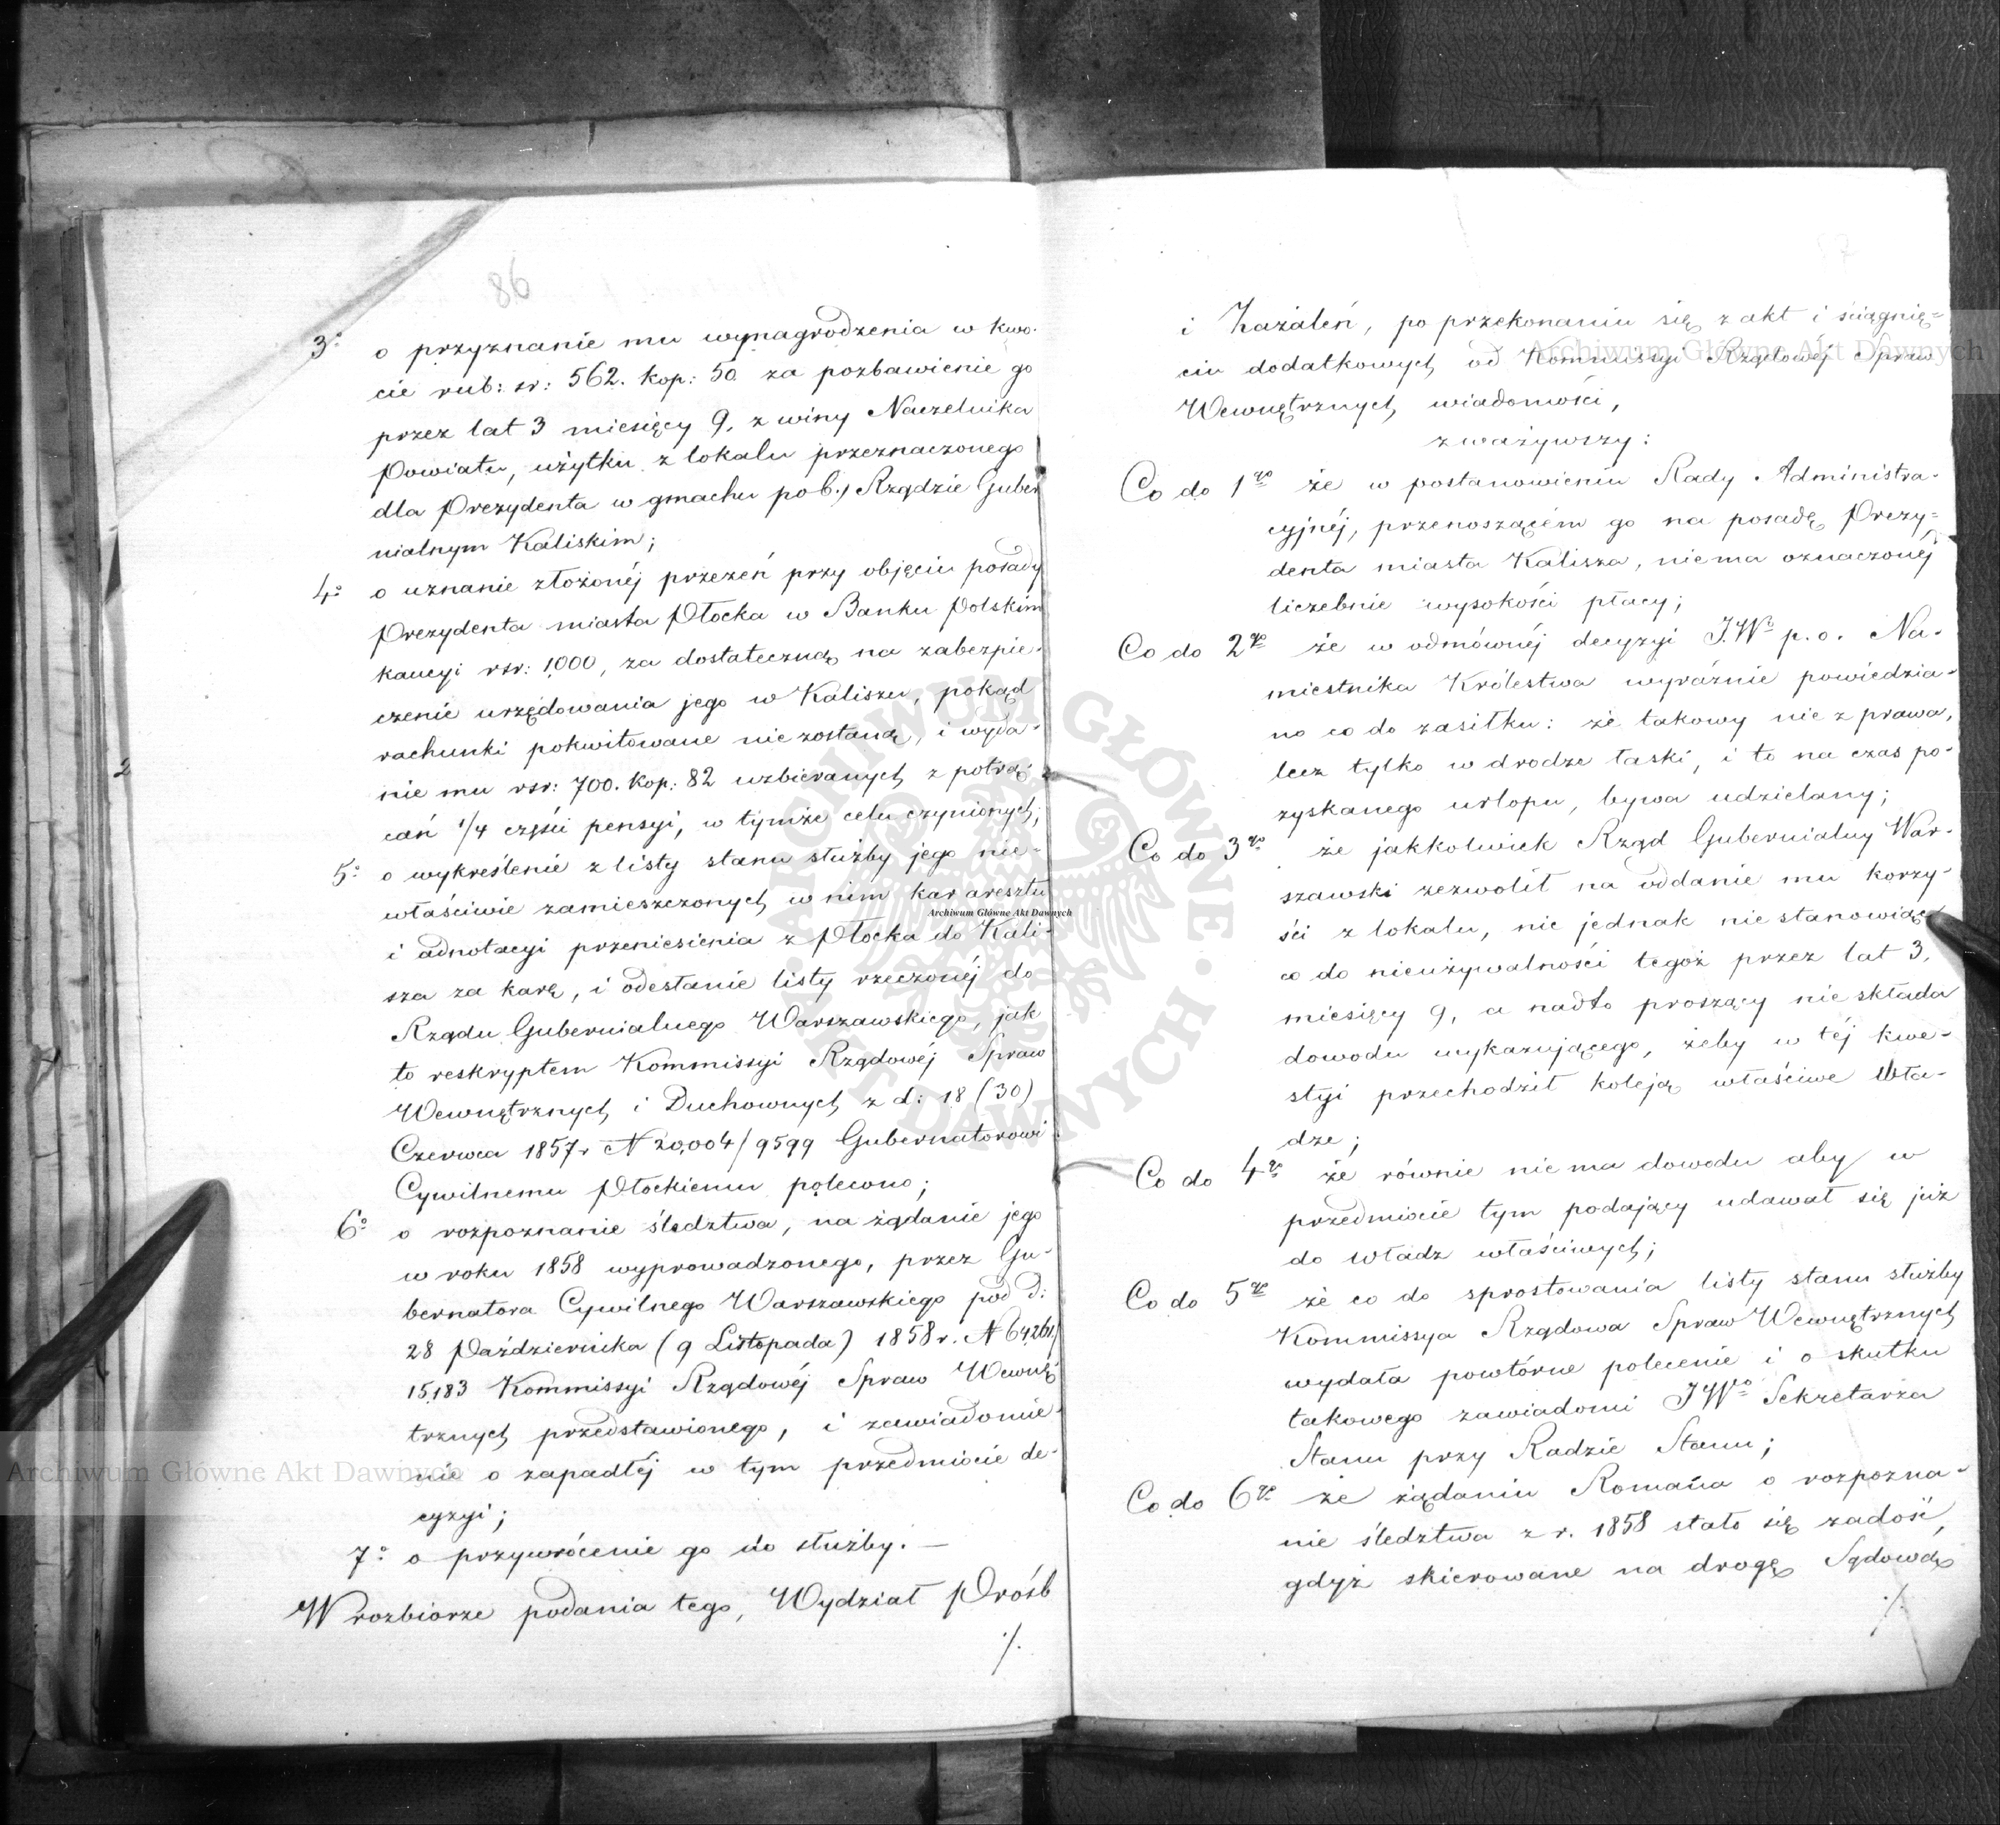 86
3o o przyznanie mu wynagrodzenia w kwo-
cie rub: sr: 562. kop: 50 za pozbawienie go
przez lat 3 miesięcy 9, z winy Naczelnika
Powiatu, użytku z lokalu przeznaczonego
dla Prezydenta w gmachu po b.) Rządzie Guber
nialnym Kaliskim;
4o o uznanie złożonéj przezeń przy objęciu posady
Prezydenta miasta Płocka w Banku Polskim
kaucyi rsr: 1,000, za dostateczną na zabezpie-
czenie urzędowania jego w Kaliszu, pokąd
rachunki pokwitowane nie zostaną, i wyda-
nie mu rsr: 700. kop: 82 uzbieranych z potrą-
cań 1/4 części pensyi, w tymże celu czynionych;
5o o wykreślenie z listy stanu służby jego nie-
właściwie zamieszczonych w nim kar aresztu
i adnotacyi przeniesienia z Płocka do Kali-
sza za karę, i odesłanie listy rzeczonéj do
Rządu Gubernialnego Warszawskiego, jak
to reskryptem Kommissyi Rządowéj Spraw
Wewnętrznych i Duchownych z d: 18 (30)
Czerwca 1857 r N 20,004/9599 Gubernatorowi
Cywilnemu Płockiemu polecono;
6o o rozpoznanie śledztwa, na żądanie jego
w roku 1858 wyprowadzonego, przez Gu-
bernatora Cywilnego Warszawskiego pod d:
28 Października (9 Listopada) 1858 r. N 64261/
15,183 Kommissyi Rządowéj Spraw Wewnę-
trznych przedstawionego, i zawiadomie-
nie o zapadłéj w tym przedmiocie de-
cyzyi;
7o o przywrócenie go do służby. —
W rozbiorze podania tego, Wydział Próśb
./.
i Zażaleń, po przekonaniu się z akt i ściągnię-
ciu dodatkowych od Kommissyi Rządowéj Spraw
Wewnętrznych wiadomości,
zważywszy:
Co do 1go że w postanowieniu Rady Administra-
cyjnéj, przenoszącém go na posadę Prezy-
denta miasta Kalisza, niema oznaczonéj
liczebnie wysokości płacy;
Co do 2go że w odmównéj decyzyi J.Wo p.o. Na-
miestnika Królestwa wyraźnie powiedzia-
no co do zasiłku: że takowy nie z prawa,
lecz tylko w drodze łaski, i to na czas po-
zyskanego urlopu, bywa udzielany;
Co do 3go że jakkolwiek Rząd Gubernialny War-
szawski zezwolił na oddanie mu korzy-
ści z lokalu, nic jednak nie stanowiąc
co do nieużywalności tegoż przez lat 3,
miesięcy 9, a nadto proszący nie składa
dowodu wykazującego, żeby w téj kwe-
styi przechodził koleją właściwe Wła-
dze;
Co do 4go że równie nie ma dowodu aby w
przedmiocie tym podający udawał się już
do Władz właściwych;
Co do 5go że co do sprostowania listy stanu służby
Kommissya Rządowa Spraw Wewnętrznych
wydała powtórne polecenie i o skutku
takowego zawiadomi JWgo Sekretarza
Stanu przy Radzie Stanu;
Co do 6go że żądaniu Romana o rozpozna-
nie śledztwa z r. 1858 stało się zadość,
gdyż skierowane na drogę Sądową
./.
Archiwum Główne Akt Dawnych
Archiwum Główne Akt Dawnych
Archiwum Główne Akt Dawnych
ARCHIWUM GŁÓWNE · AKT DAWNYCH ·